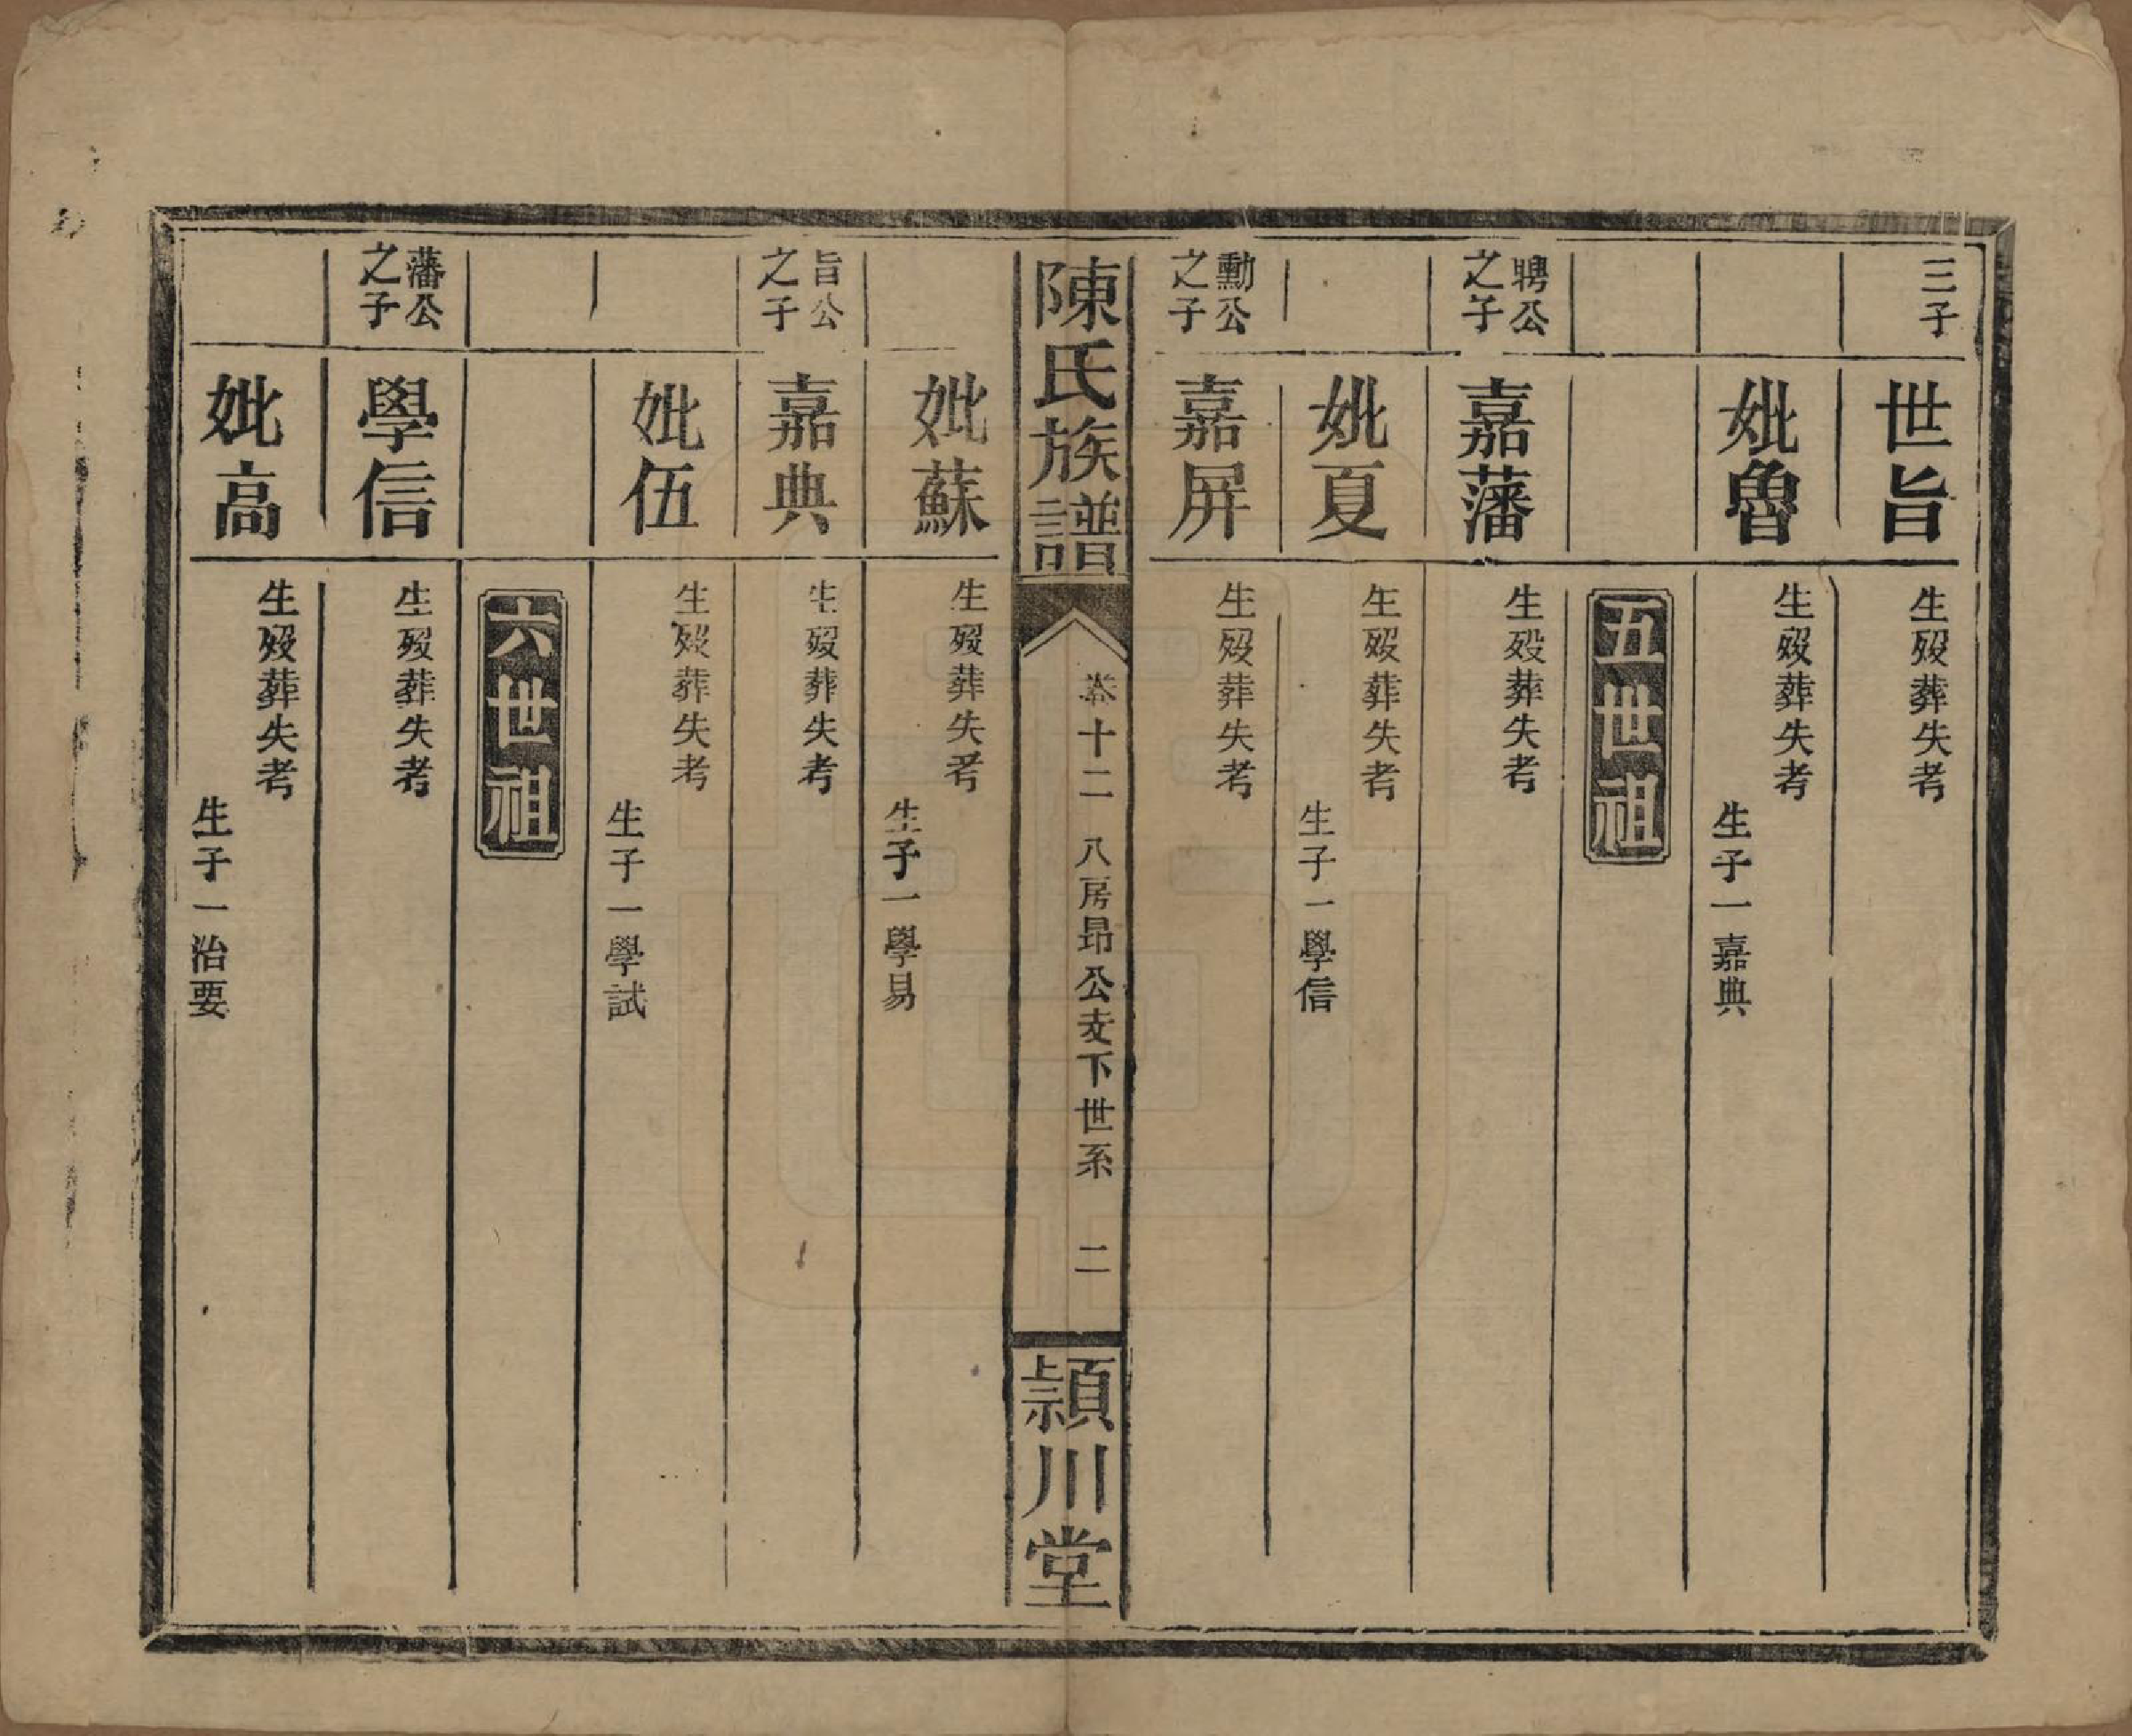 三子
世旨
生歿葬失考
妣魯
生歿葬失考
生子一嘉典
五世祖
聘公
之子
嘉藩
生歿葬失考
妣夏
生歿葬失考
生子一學信
勳公
之子
嘉屏
生歿葬失考
陳氏族譜
卷十二 八房昂公支下世系 二
潁川堂
妣蘇
生歿葬失考
生子一學易
旨公
之子
嘉典
生歿葬失考
妣伍
生歿葬失考
生子一學試
六世祖
藩公
之子
學信
生歿葬失考
妣高
生歿葬失考
生子一治要